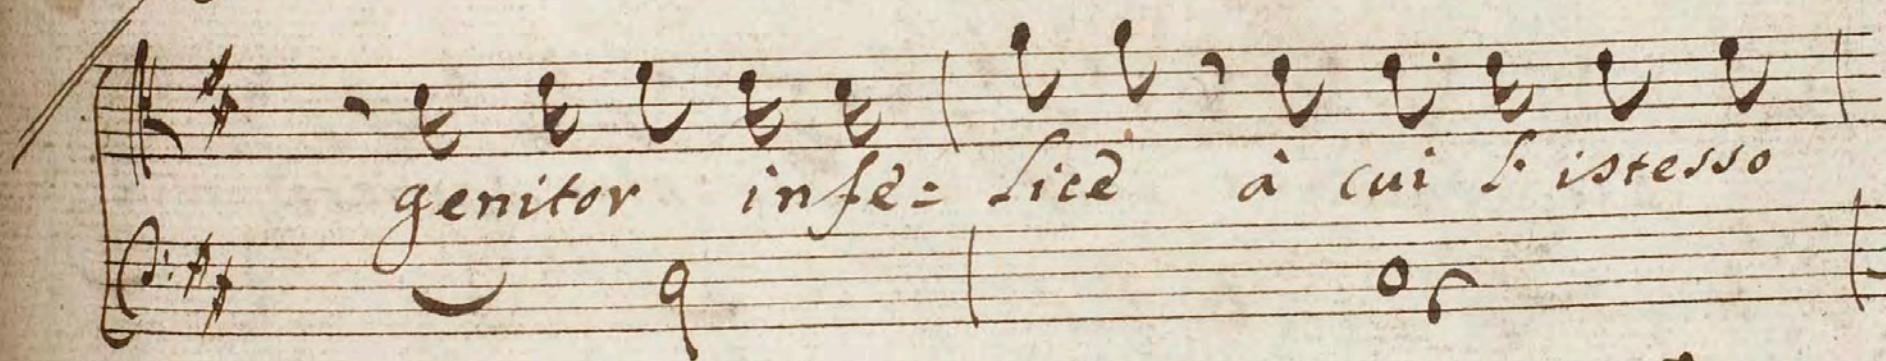 genitor infe= lice à cui l' istesso